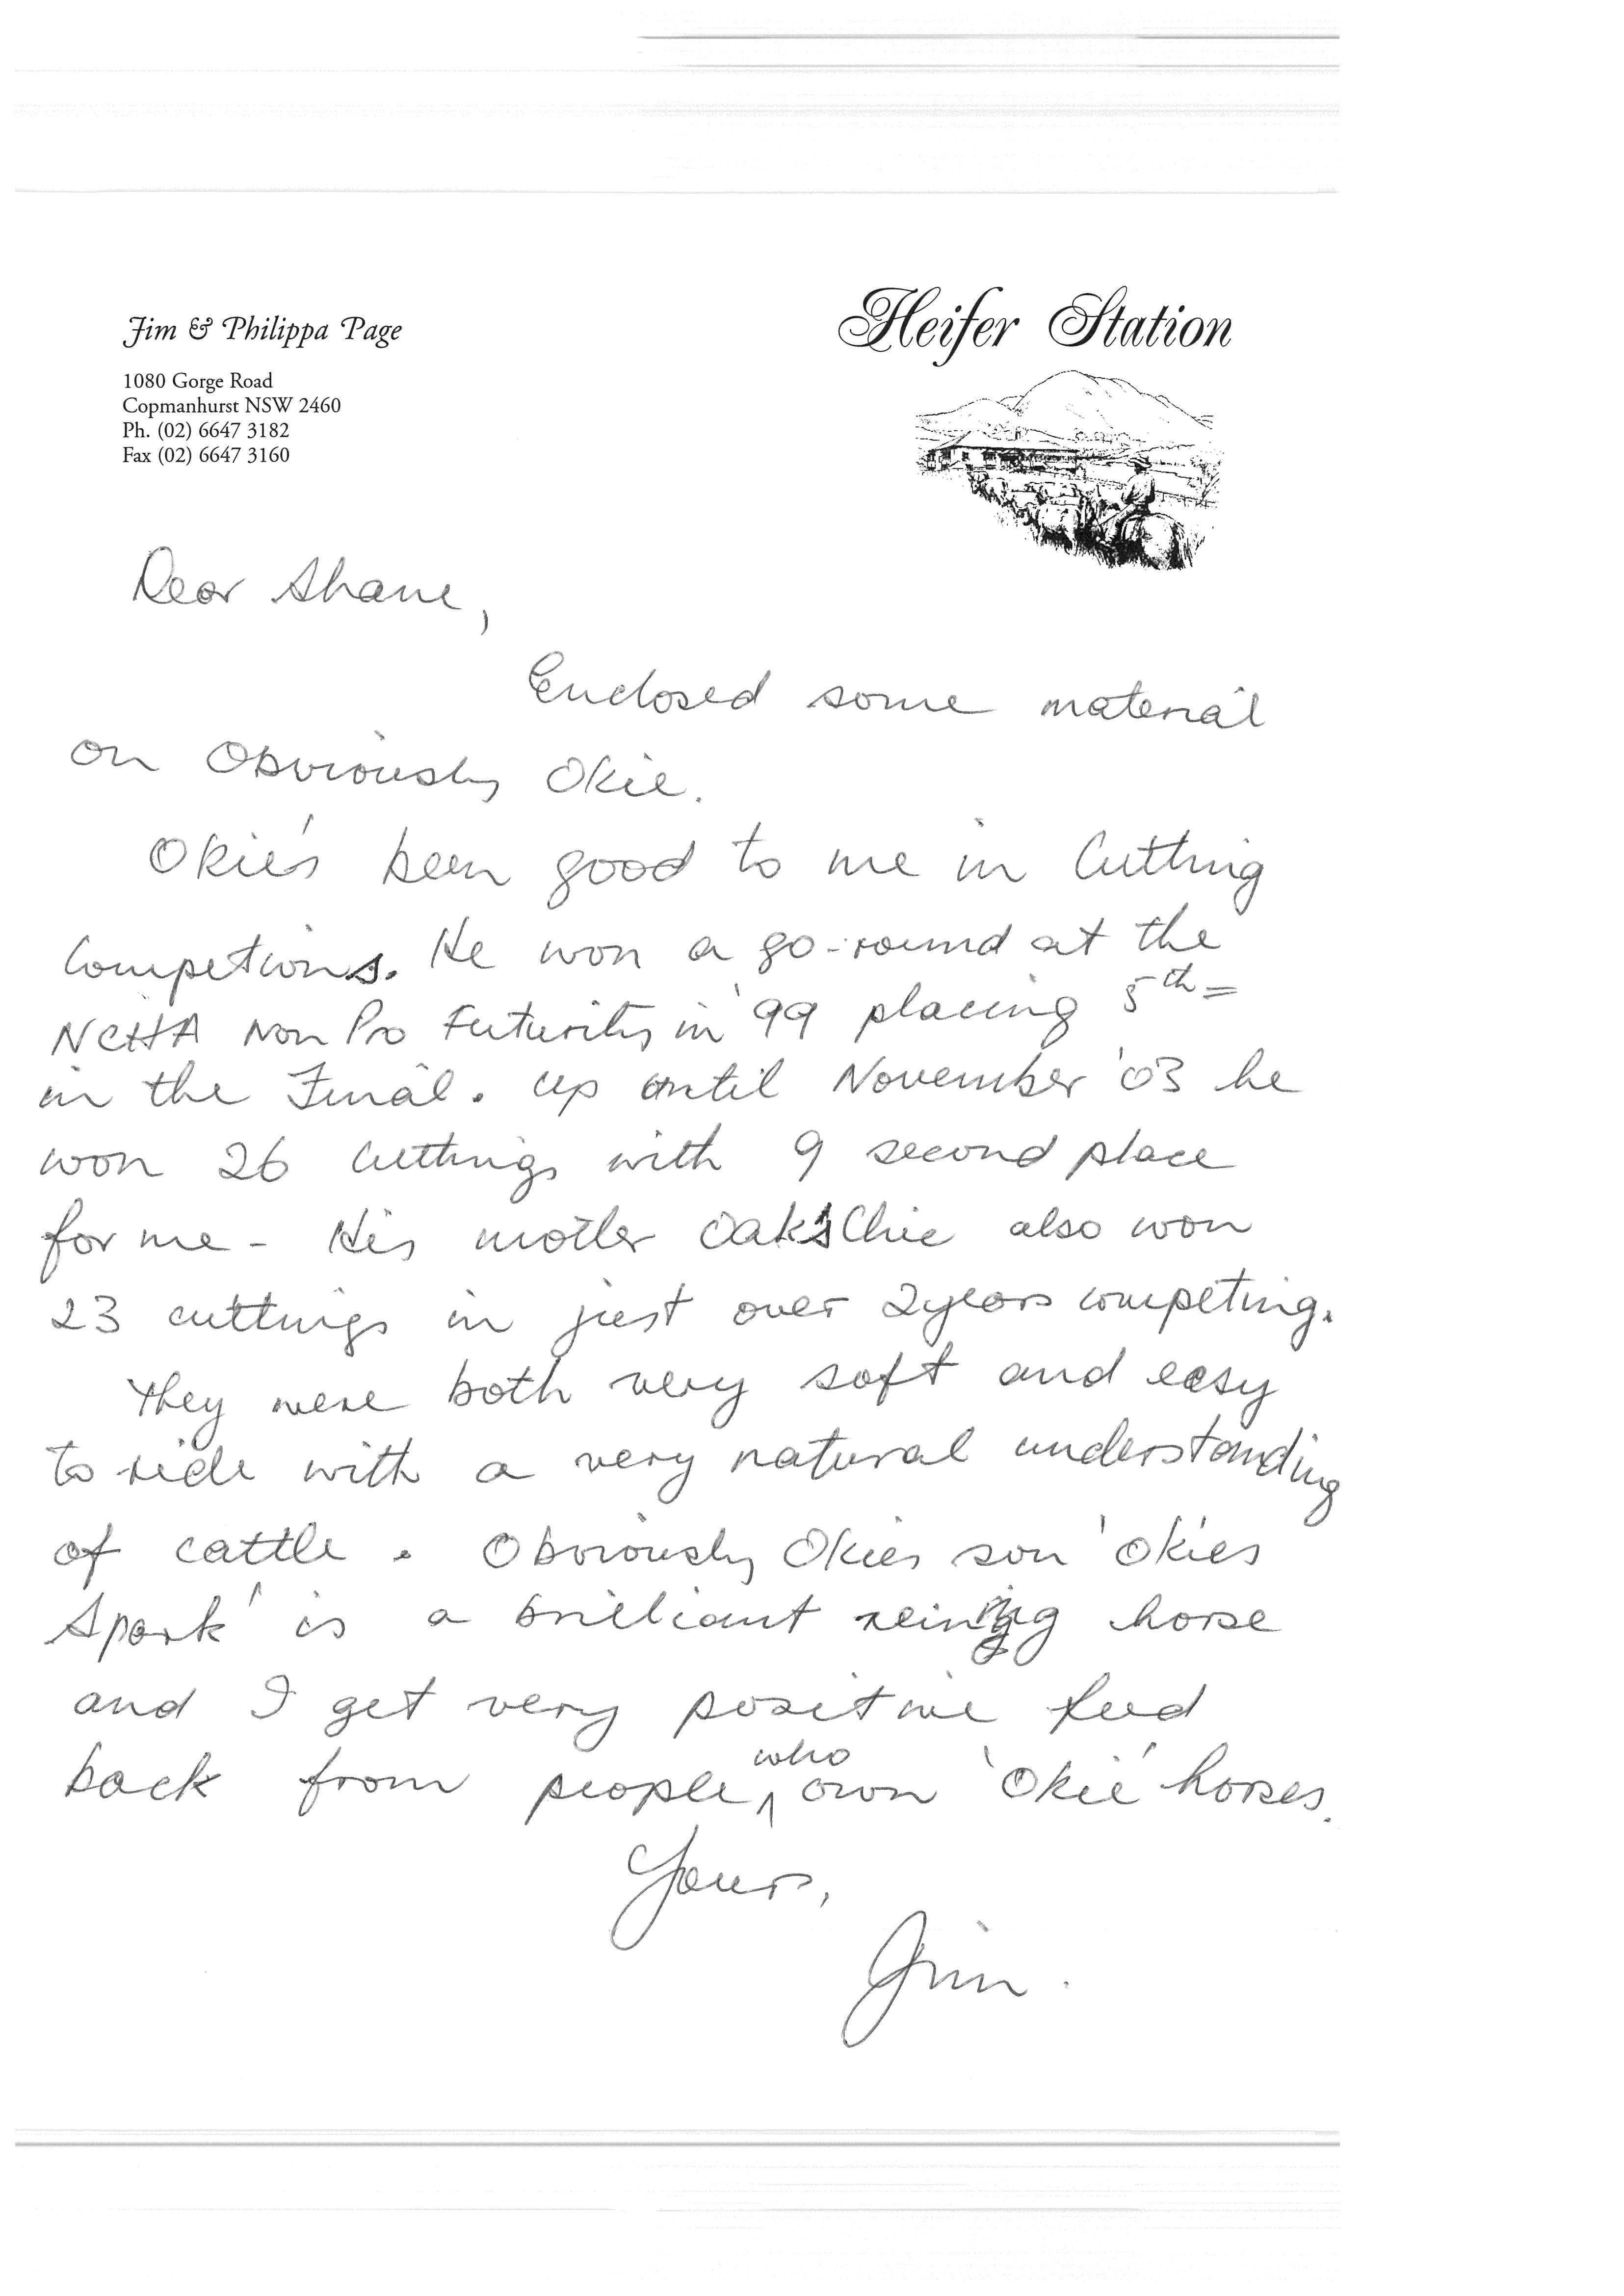 Jim & Philippa Page
Heifer Station
1080 Gorge Road
Copmanhurst NSW 2460
Ph. (02) 6647 3182
Fax (02) 6647 3160
Dear Shane,
Enclosed some material
on Obviously Okie.
Okie's been good to me in Cutting
Competions. He won a go-round at the
NCHA Non Pro Futurity in '99 placing 5th=
in the Final. up until November '03 he
won 26 cuttings with 9 second place
for me - His mother Oaks Chic also won
23 cuttings in just over 2 years competing.
They were both very soft and easy
to ride with a very natural understanding
of cattle. Obviously Okies son 'Okies
Spark' is a brilliant reining horse
and I get very positive feed
back from people who own 'Okie' horses.
Yours,
Jim.